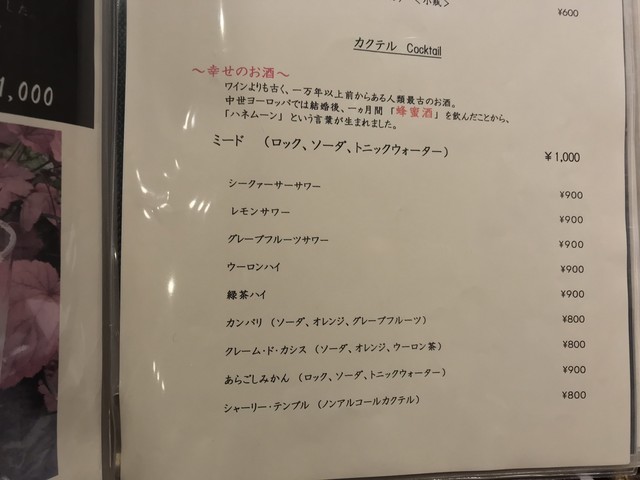 した
1,000
<小瓶>
¥600
カクテル Cocktail
～幸せのお酒～
ワインよりも古く、一万年以上前からある人類最古のお酒。
中世ヨーロッパでは結婚後、一ヵ月間「蜂蜜酒」を飲んだことから、
「ハネムーン」という言葉が生まれました。
ミード （ロック、ソーダ、トニックウォーター） ¥1,000
シークァーサーサワー ¥900
レモンサワー ¥900
グレープフルーツサワー ¥900
ウーロンハイ ¥900
緑茶ハイ ¥900
カンパリ （ソーダ、オレンジ、グレープフルーツ） ¥800
クレーム・ド・カシス （ソーダ、オレンジ、ウーロン茶） ¥800
あらごしみかん （ロック、ソーダ、トニックウォーター） ¥900
シャーリー・テンプル （ノンアルコールカクテル） ¥800